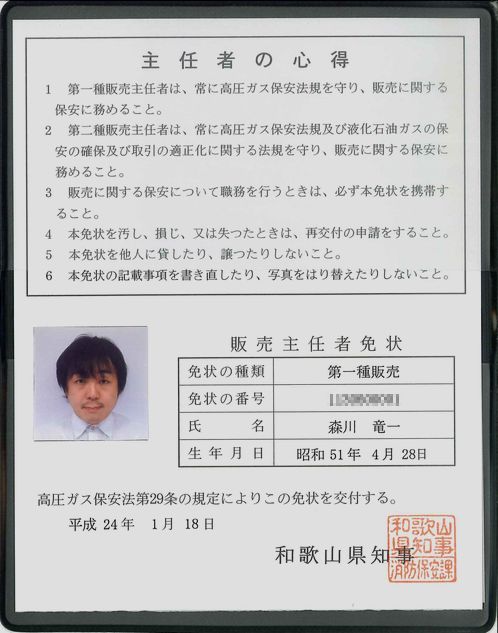 主任者の心得
1 第一種販売主任者は、常に高圧ガス保安法規を守り、販売に関する
保安に務めること。
2 第二種販売主任者は、常に高圧ガス保安法規及び液化石油ガスの保
安の確保及び取引の適正化に関する法規を守り、販売に関する保安に
務めること。
3 販売に関する保安について職務を行うときは、必ず本免状を携帯す
ること。
4 本免状を汚し、損じ、又は失つたときは、再交付の申請をすること。
5 本免状を他人に貸したり、譲つたりしないこと。
6 本免状の記載事項を書き直したり、写真をはり替えたりしないこと。
販売主任者免状
免状の種類 第一種販売
免状の番号
氏名 森川 竜一
生年月日 昭和 51年 4月 28日
高圧ガス保安法第29条の規定によりこの免状を交付する。
平成 24年 1月 18日
和歌山県知事
和歌山
県知事
消防保安課